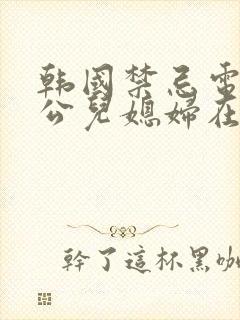 韩國禁忌電
公兒媳婦在
幹了這杯黑咖